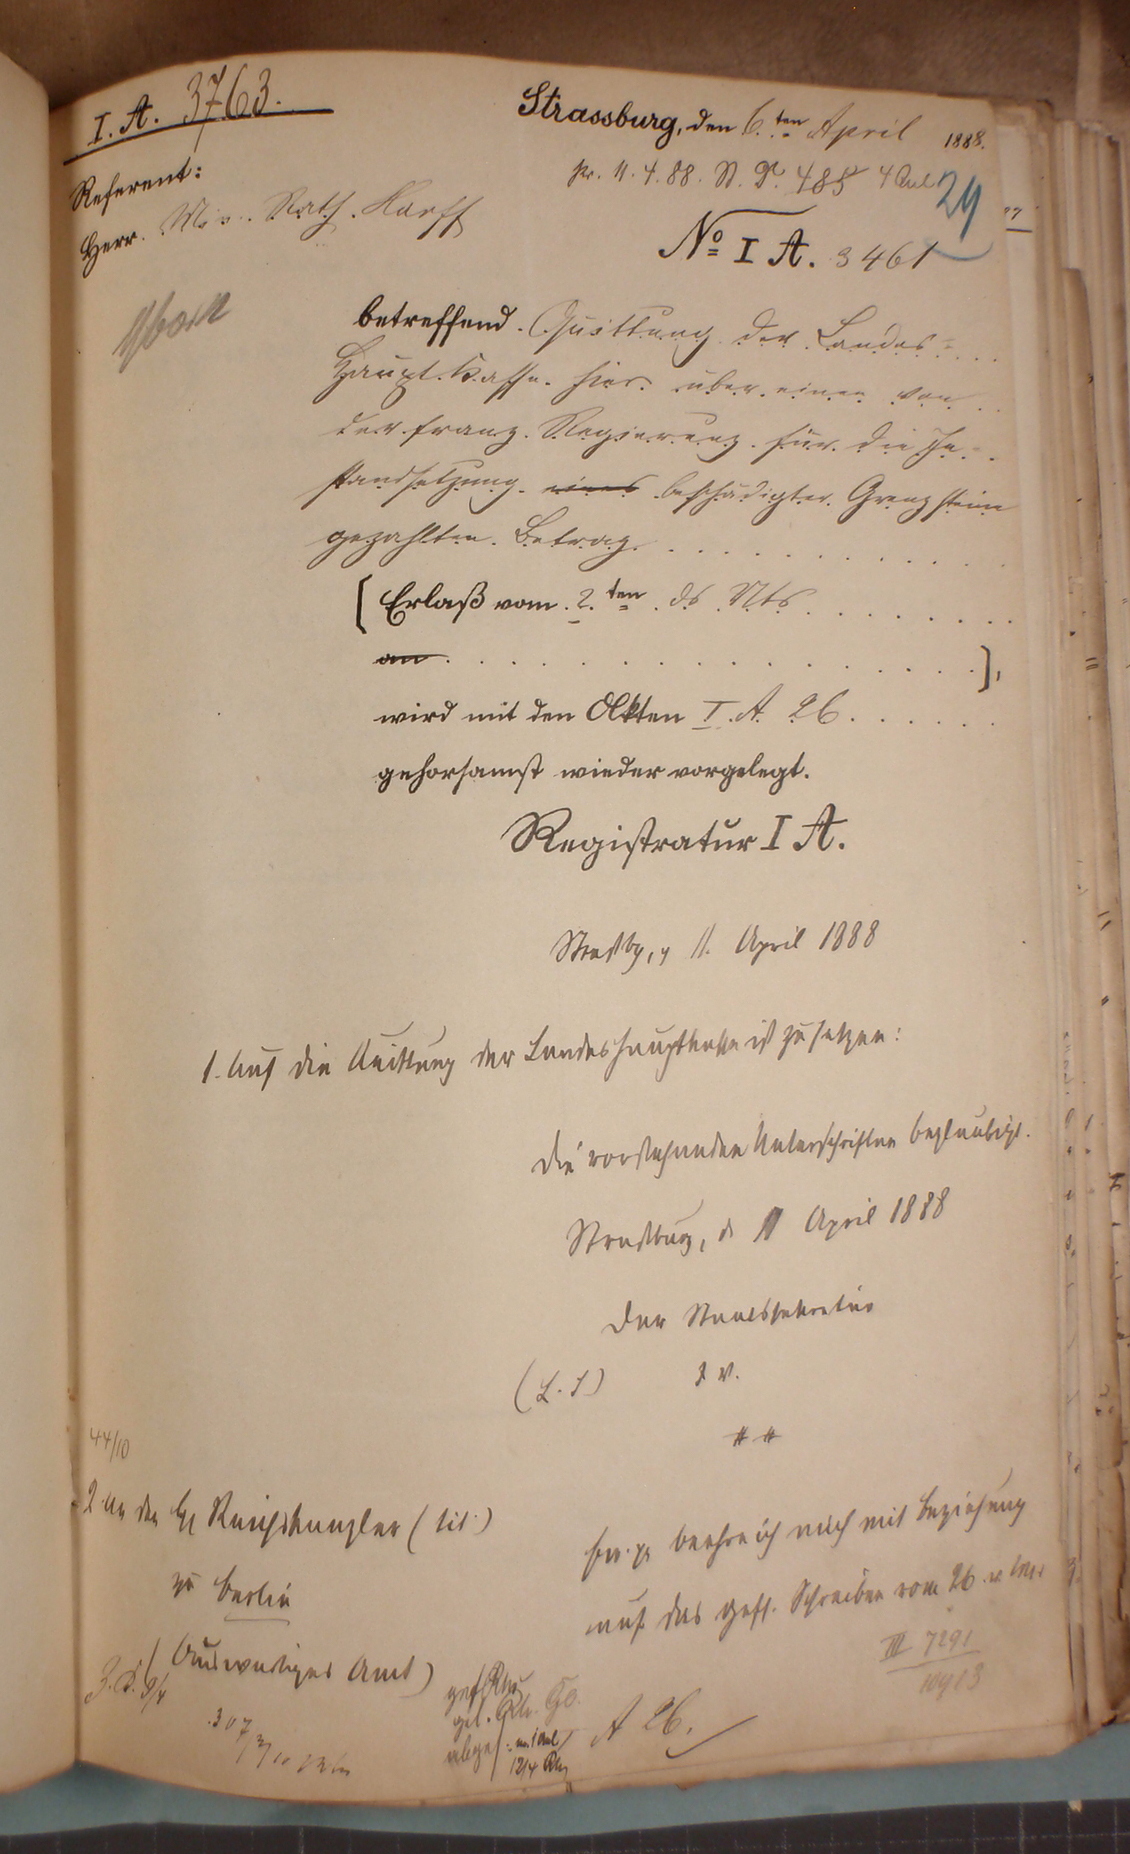 I. A. 3763.
Strassburg, den 6.ten April 1888.
pr. 11. 4. 88. 485 4 Anl
24
Referent:
Herr Min. Rath Harff
No I A. 3461
betreffend Quittung der Landes-
Haupt-Kasse hier über einen von
der franz. Regierung für die In-
standsetzung eines beschädigter Grenzsteine
gezahlten Betrag
[Erlaß vom 2.ten ds Mts
an ],
wird mit den Akten I. A. 26.
gehorsamst wieder vorgelegt.
Registratur I A.
Straßbg, d 11. April 1888
1. Auf die Quittung der Landeshauptkasse ist zu setzen:
Die vorstehenden Unterschriften beglaubigt.
Straßburg, d 11 April 1888
Der Staatssekretär
(L. S) I V.
44/10
2 An den Reichskanzler (tit.)
zu Berlin
(Auswärtiges Amt)
beehre ich mich mit Beziehung
auf das gefl. Schreiben vom 26. v. Mts
III 7291
10913
307
A 26.
12/4